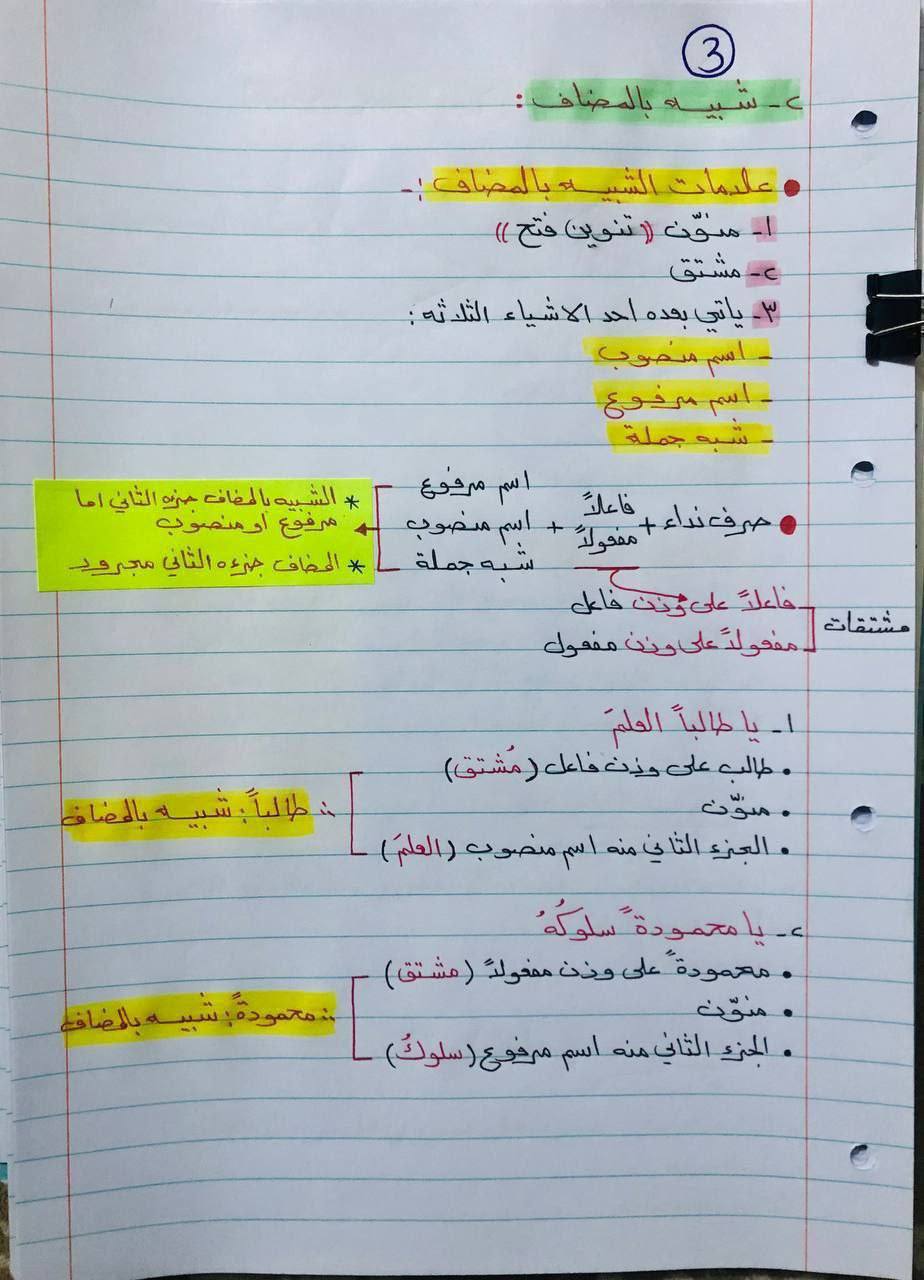 3
٢- شبيه بالمضاف :
● علامات الشبيه بالمضاف :-
١- منوّن (( تنوين فتح ))
٢- مشتق
٣- ياتي بعده احد الاشياء الثلاثه :
- اسم منصوب
- اسم مرفوع
- شبه جملة
● حرف نداء + فاعلاً مفعولاً + اسم مرفوع
اسم منصوب
شبه جملة
* الشبيه بالمضاف جزءه الثاني اما
مرفوع او منصوب
* المضاف جزءه الثاني مجرور
مشتقات
فاعلاً على وزن فاعل
مفعولاً على وزن مفعول
١- يا طالباً العلمَ
• طالب على وزن فاعل (مُشتق)
• منوّن
• الجزء الثاني منه اسم منصوب (العلمَ)
∴ طالباً : شبيه بالمضاف
٢- يا محمودةً سلوكُهُ
• محمودةً على وزن مفعولاً (مشتق)
• منوّن
• الجزء الثاني منه اسم مرفوع (سلوكُ)
∴ محمودةً : شبيه بالمضاف